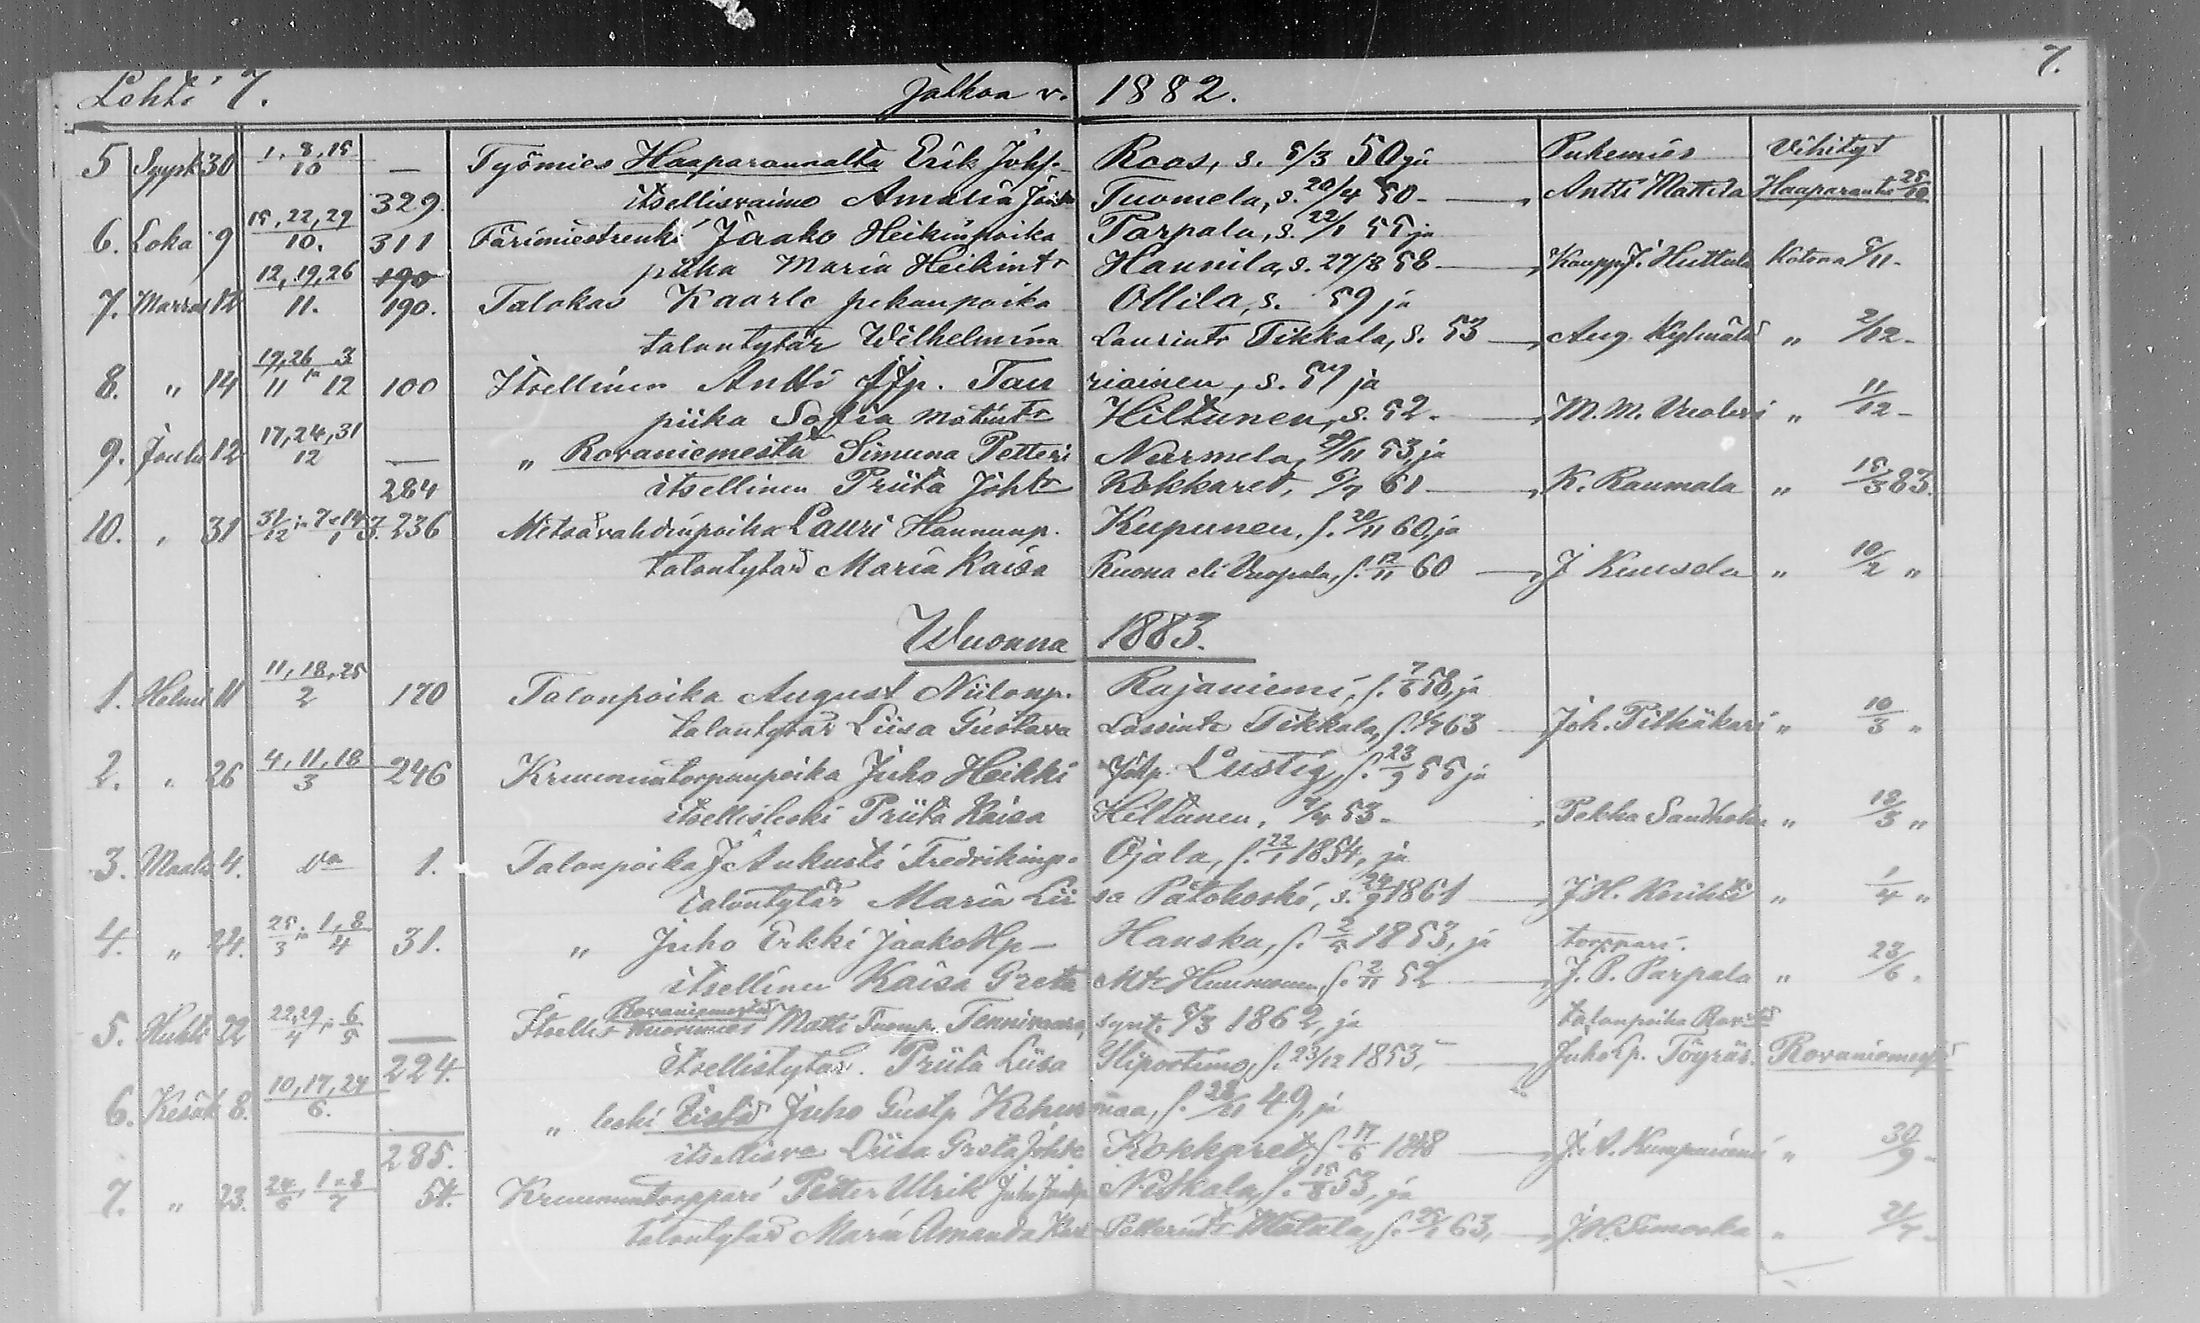 Lehti 7. Jatkoa v. 1882. 7.
5 Syysk 30 1, 8, 15/10 — Työmies Haaparannalta Erik Johs. Roos, s. 5/3 50 ja Puhemies Vihityt
329. itsellisvaimo Amalia Tuomela, s. 20/4 50 — Antti Mattila Haaparanta 25/10
6. Loka 9 15, 22, 29/10. 311 Färimiestrenki Jaako Heikinpoika Parpala, s. 22/1 55 ja
12, 19, 26 190 piika Maria Heikintr Hannila, s. 27/8 58 — Kaupp. J. Huttula Kotona 5/11.
7. Marras 12 11. 190. Talokas Kaarle pekanpoika Ollila, s. 59 ja
talontytär Wilhelmina Laurintr Tikkala, s. 53 — Aug. Kylmälä " 2/12.
8. " 14 19, 26/11 in 3/12 100 Itsellinen Antti Tauriainen, s. 57 ja
piika Sofia Matintr Hiltunen, s. 52. — M. M. Vuolevi " 11/12 -
9. Joulu 12 17, 24, 31/12 — " Rovaniemestä Simuna Petteri Narmela, 29/11 53, ja
284 itsellinen Priita Johtr Kokkaret, 6/7 61 — K. Raumala " 15/3 83.
10. " 31 31/12 in 7 14/1 3. 236 Metsävahdinpoika Lauri Hannunp. Kupunen, s. 20/11 60, ja
talontytär Maria Kaisa Ruona eli Vuopala, s. 12/11 60 — J Kuusela " 10/2 "
Wuonna 1883.
1. Helmi 11 11, 18, 25/2 170 Talonpoika August Niilonp. Rajaniemi, s. 7/6 58, ja
talontytär Liisa Gustava Lassintr Tikkala, s. 63 Joh. Pitkäkari " 10/3 "
2. " 26 4, 11, 18/3 246 Kruununtorpanpoika Juho Heikki Johp. Lustig, s. 23/9 55 ja
itsellisleski Priita Kaisa Hiltunen, 4/4 53 - Pekka Sandholm " 18/3 "
3. Maalis 4. do 1. Talonpoika J Aukusti Fredrikinp. Ojala, s. 22/1 1854, ja
talontytär Maria Liisa Patokoski, s. 24/9 1861 — J. H. " 1/4 "
4. " 24. 25/3 in 1, 8/4 31. " Juho Erkki Jaako Hp - Hanska, s. 2/5 1853, ja torppari
itsellinen Kaisa Greta Mtr s. 2/11 52 — J. P. Parpala " 23/6.
5. Huhti 22 22, 29/4 in 6/5 — Itsellis Rovaniemestä Matti Tuomp. Tennivaara, synt. 5/3 1862, ja talonpoika
224. itsellistytär. Priita Liisa Yliportimo, s. 23/12 1853, — Juho Töyräs. Rovaniemessä
6. Kesäk 8. 10, 17, 24/6. " leski Juho Gustp s. 28/11 49, ja
285. itsellisva Liisa Greta Johtr Kokkaret, s. 17/6 1848 — J. A. Kumpuniemi " 30/9 -
7. " 23. 24/6. 1 8/7 54. Kruununtorppari Petter Ulrik Niskala, s. 15/8 53, ja
talontytär Maria Amanda Petterintr s. 63, — J. H. Simoska " 21/7.